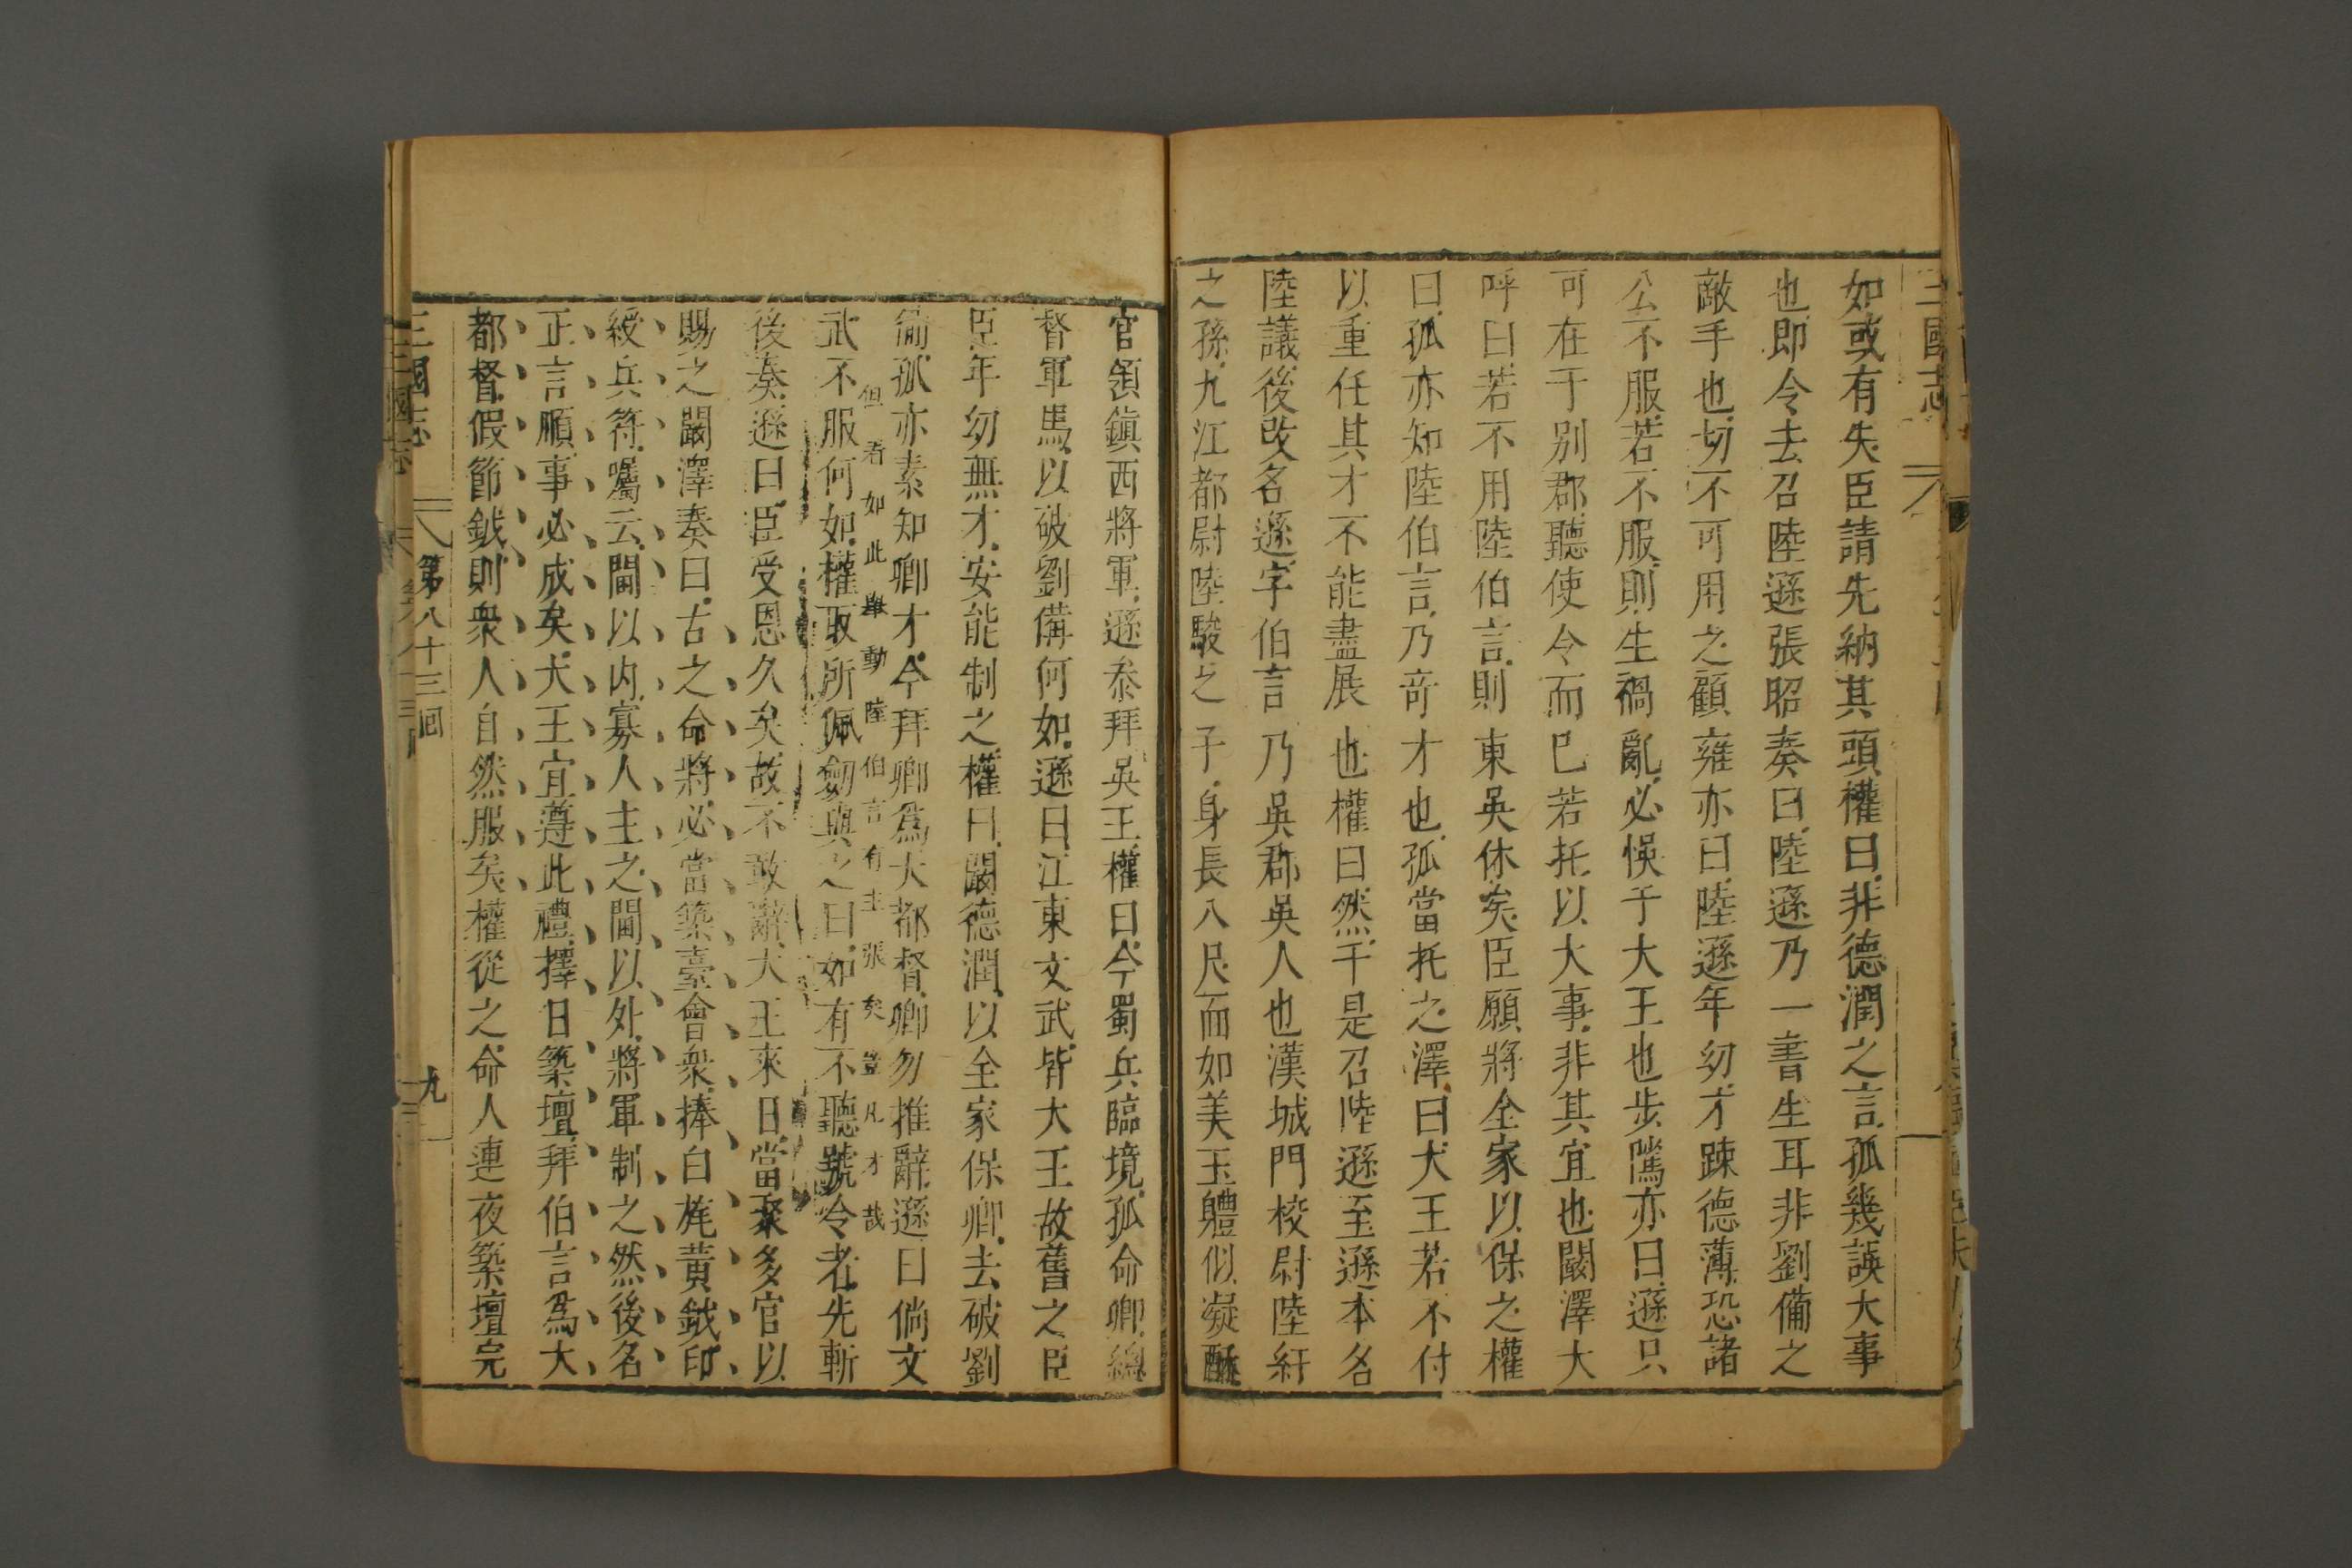 三國志
如或有失臣請先納其頭權曰非德潤之言孤幾誤大事
也即令去召陸遜張昭奏曰陸遜乃一書生耳非劉備之
敵手也切不可用之顧雍亦曰陸遜年幼才踈德薄恐諸
公不服若不服則生禍亂必悞于大王也步隲亦曰遜只
可在于別郡聽使令而已若托以大事非其宜也闞澤大
呼曰若不用陸伯言則東吳休矣臣願將全家以保之權
曰孤亦知陸伯言乃奇才也孤當托之澤曰大王若不付
以重任其才不能盡展也權曰然于是召陸遜至遜本名
陸議後改名遜字伯言乃吳郡吳人也漢城門校尉陸紆
之孫九江都尉陸駿之子身長八尺面如美玉體似凝酥
官領鎮西將軍遜叅拜吳王權曰今蜀兵臨境孤命卿總
督軍馬以破劉備何如遜曰江東文武皆大王故舊之臣
臣年幼無才安能制之權曰闞德潤以全家保卿去破劉
備孤亦素知卿才今拜卿為大都督卿勿推辭遜曰倘文
但看如此舉動陸伯言有主張矣豈凡才哉
武不服何如權取所佩劒與之曰如有不聽號令者先斬
後奏遜曰臣受恩久矣故不敢辭大王來日當聚多官以
賜之闞澤奏曰古之命將必當築臺會衆捧白旄黃鉞印
綬兵符囑云閫以內寡人主之閫以外將軍制之然後名
正言順事必成矣大王宜遵此禮擇日築壇拜伯言為大
都督假節鉞則衆人自然服矣權從之命人連夜築壇完
三國志 第八十三回 九